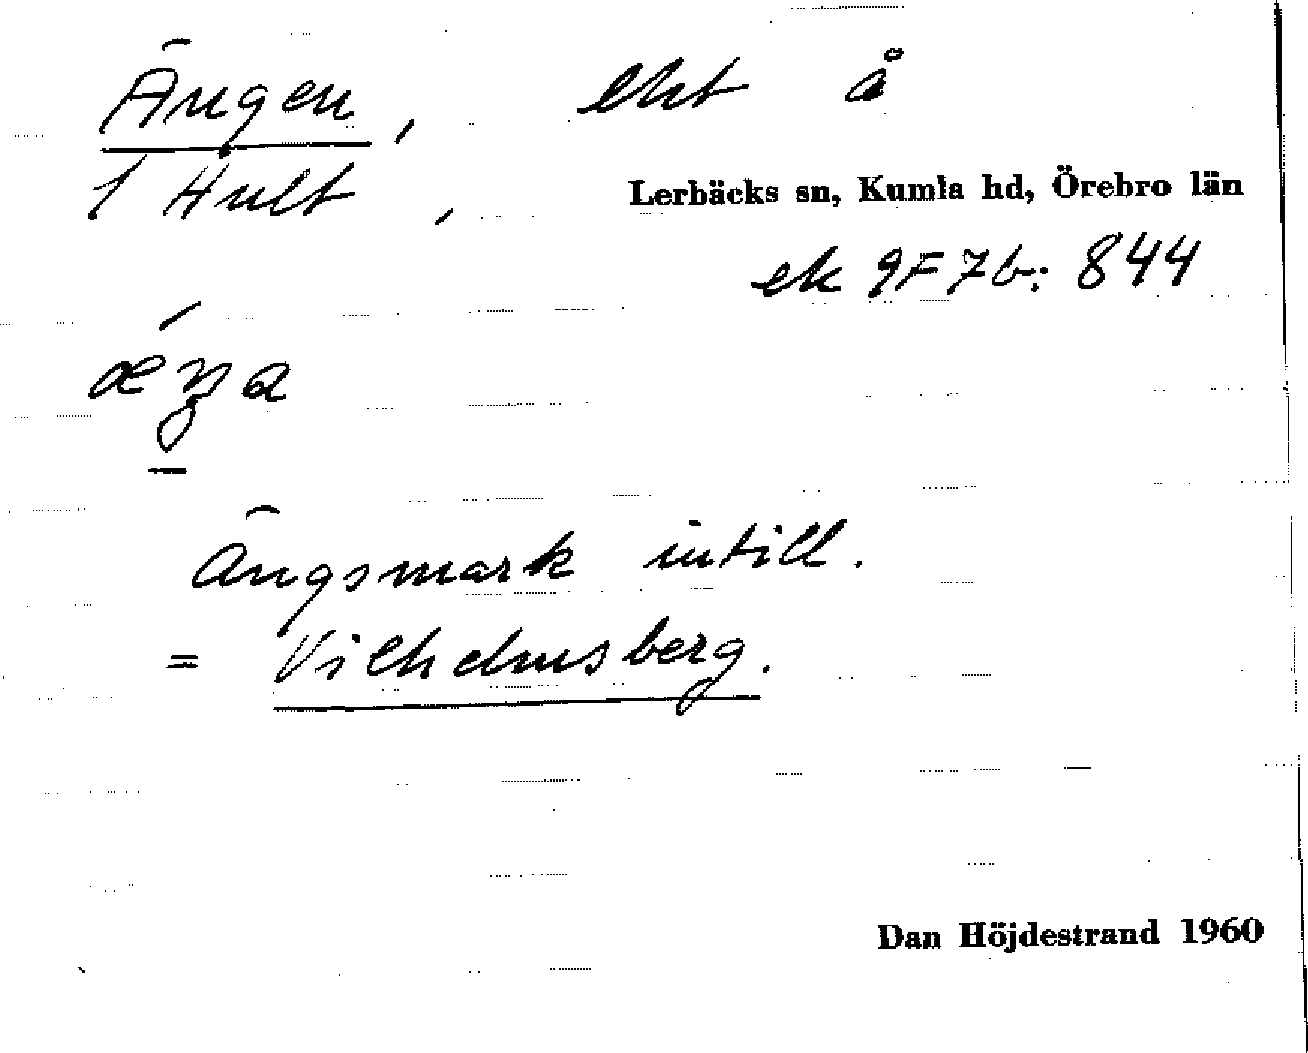 Ängen, eht å
1 Hult, Lerbäcks sn, Kumla hd, Örebro län
ek 9F7b: 844
Ängsmark intill.
= Vilhelmsberg.
Dan Höjdestrand 1960